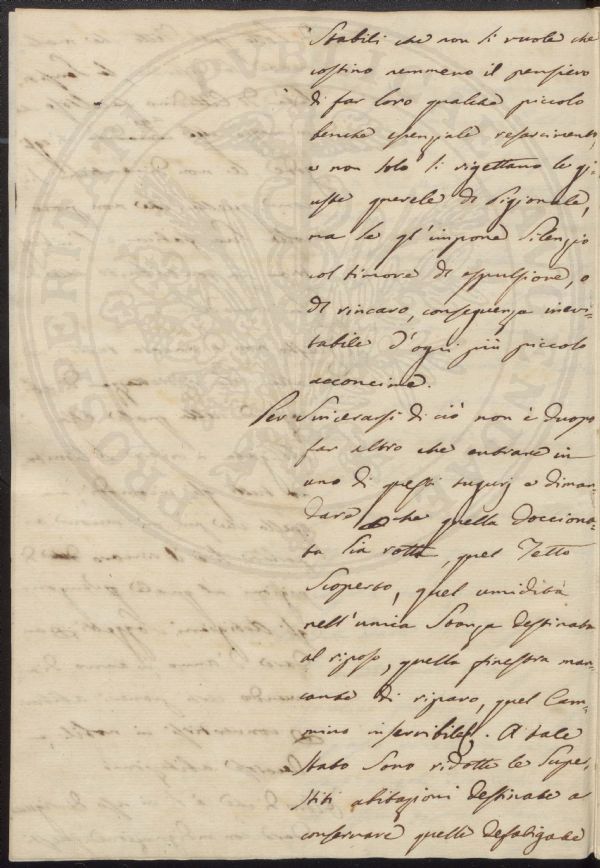 Stabili che non si vuole che
costino nemmeno il pensiero
di far loro qualche piccolo
benche essenziale resarcimento,
e non solo si rigettano le gi=
uste querele de Pigionale,
ma se gl'impone Silenzio
col timore di espulsione, o
di rincaro, conseguenza inevi=
tabile d'ogni più piccolo
acconcime.
Per Sincerarsi di ciò non è duopo
far altro che entrare in
uno di questi tugurj e diman=
dare che quella Docciona=
ta sia rotta, quel Tetto
Scoperto, quel umidità
nell'unica Stanza destinata
al riposo, quella finestra man=
cante di riparo, quel Cam=
mino inservibile. A tale
Stato Sono ridotte le Super=
stiti abitazioni destinate a
conservare quelle defatigate
PROSPERITATI PUBLICAE AUGENDAE